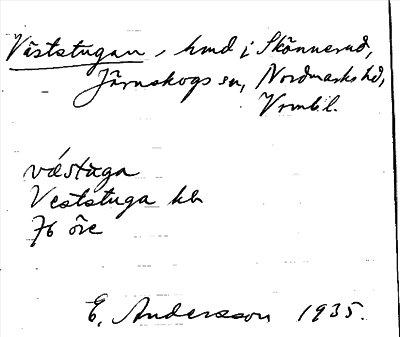 Väststugan, hmd i Skönnerud,
Järnskogs sn, Nordmarks hd,
Vrml.
vǽstùga
Veststuga kb
76 öre
E. Andersson 1935.